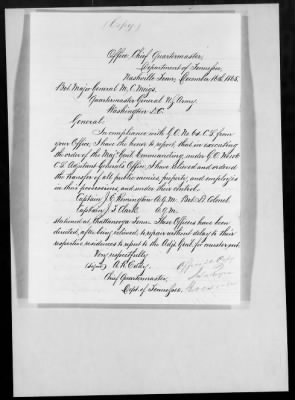 (Copy)
Office Chief Quartermaster,
Department of Tennessee,
Nashville Tenn, December 18th 1865.
Bvt Major General M. C. Meigs,
Quartermaster General U.S. Army,
Washington D.C.
General:
In compliance with G.O. No 60 C.S. from
your Office, I have the honor to report, that in executing
the order of the Maj Genl Commanding, under G.O.
C.S. Adjutant General's Office, I have relieved and ordered
the transfer of all public monies, property, and employes
in their possessions, and under their control.
Captain J. C. Remington A.Q.M. Bvt Lt Colonel
Captain J. F. Clark A.Q.M.
stationed at Chattanooga Tenn. These Officers have been
directed, after being relieved, to repair without delay to their
respective residences to report to the Adjt Genl for muster out.
Very respectfully
(Signed)
Chief Quartermaster,
Dept of Tennessee.